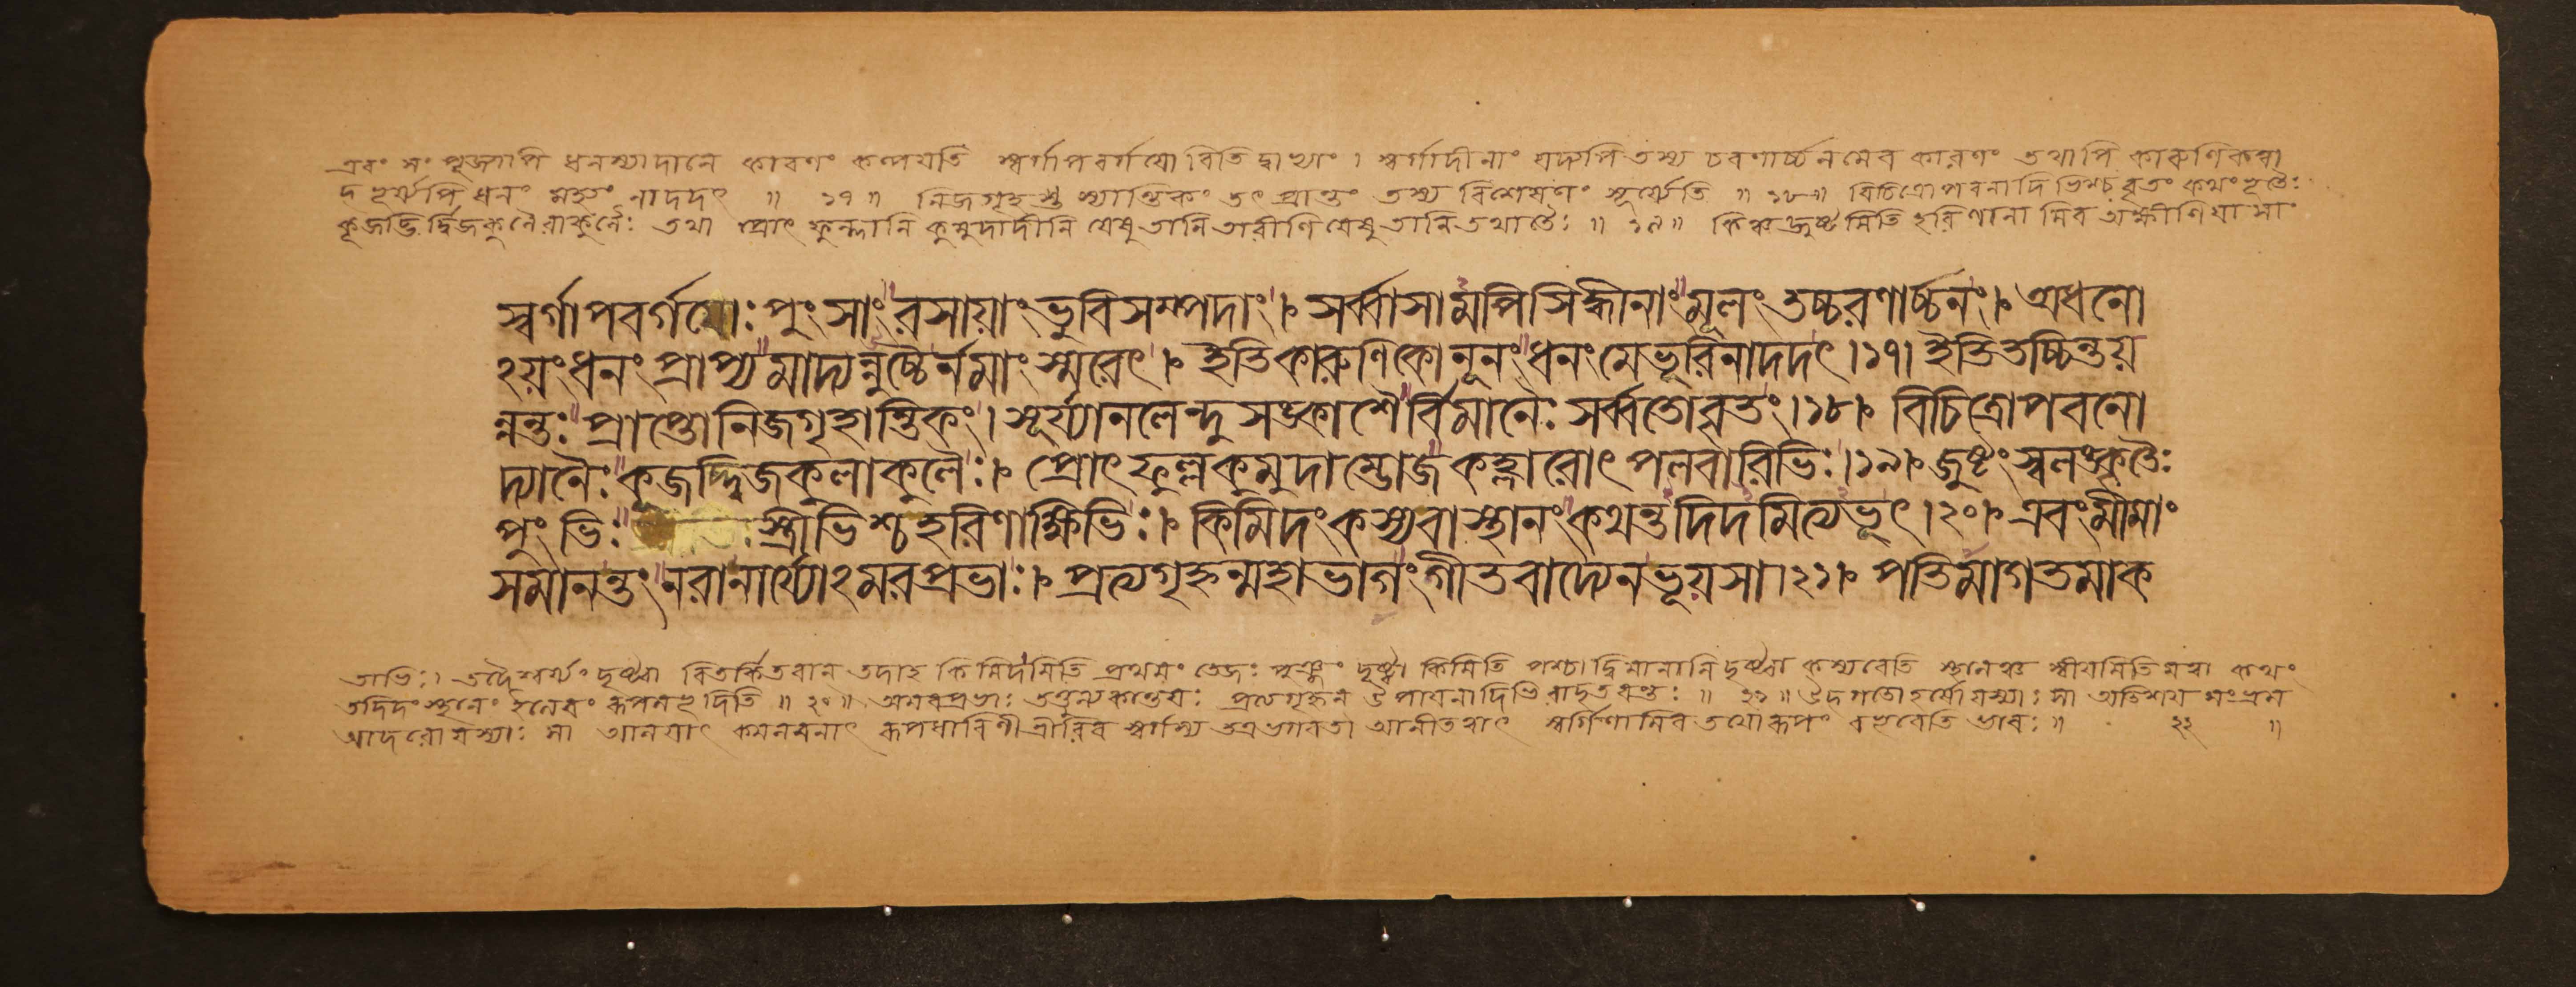 এবং সংপূজ্যাপি ধনস্যাদানে কারণং কল্পয়তি স্বর্গাপবর্গয়োরিতি দ্বাভ্যাং । স্বর্গাদীনাং যদ্যপি তস্য চরণার্চ্চনমেব কারণং তথাপি কারুণিকত্বা
দ্বহ্বপি ধনং মহ্যং নাদদৎ ॥ ১৭ ॥ নিজগৃহস্য অন্তিকং তৎ প্রাপ্তং তস্য বিশেষণং সূর্য্যেতি ॥ ১৮ ॥ বিচিত্রোপবনাদিভিশ্চ বৃতং কথংভূতৈঃ
কূজদ্ভির্দ্বিজকুলৈরাকুলৈঃ তথা প্রোৎফুল্লানি কুমুদাদীনি যেষু তানি বারীণি যেষু তানি তথা তৈঃ ॥ ১৯ ॥ কিঞ্চ জুষ্টমিতি হরিণানামিব অক্ষীণি যাসাং
স্বর্গাপবর্গয়োঃ পুংসাং রসায়াং ভুবি সম্পদাং । সর্ব্বাসামপি সিদ্ধীনাং মূলং তচ্চরণার্চ্চনং । অধনো
ঽয়ং ধনং প্রাপ্য মাদ্যন্নুচ্চৈর্নমাং স্মরেৎ । ইতি কারুণিকো নূনং ধনং মে ভূরি নাদদৎ । ১৭ । ইতি তচ্চিন্তয়
ন্নন্তঃ প্রাপ্তো নিজগৃহান্তিকং । সূর্য্যানলেন্দুসঙ্কাশৈর্বিমানৈঃ সর্ব্বতোবৃতং । ১৮ । বিচিত্রোপবনো
দ্যানৈঃ কূজদ্দ্বিজকুলাকুলৈঃ । প্রোৎফুল্লকুমুদাম্ভোজকহ্লারোৎপলবারিভিঃ । ১৯ । জুষ্টং স্বলঙ্কৃতৈঃ
পুংভিঃ স্ত্রীভিশ্চ হরিণাক্ষিভিঃ । কিমিদং কস্য বা স্থানং কথন্তদিদমিত্যভূৎ । ২০ । এবং মীমাং
সমানন্তং নরানার্য্যোঽমরপ্রভাঃ । প্রত্যগৃহ্নন্মহাভাগং গীতবাদ্যেন ভূয়সা । ২১ । পতিমাগতমাক
তাভিঃ । তদৈশ্বর্য্যং দৃষ্ট্বা বিতর্কিতবান তদাহ কিমিদমিতি প্রথমং তেজঃপুঞ্জং দৃষ্ট্বা কিমিতি পশ্চাদ্বিমানানি দৃষ্ট্বা কস্য বেতি স্থানঞ্চ স্বীয়মিতি মত্বা কথং
তদিদং স্থানং ॥ ২০ ॥ অমরপ্রভাঃ তত্তুল্যকান্তয়ঃ প্রত্যগৃহ্নন উপায়নাদিভিরাদৃতবন্তঃ ॥ ২১ ॥ উদ্গতো হর্ষো যস্যাঃ সা অতিশয় সংভ্রম
আদরো যস্যাঃ সা আলয়াৎ কমলবনাৎ রূপধারিণী শ্রীরিব ভাবঃ ॥ ২২ ॥